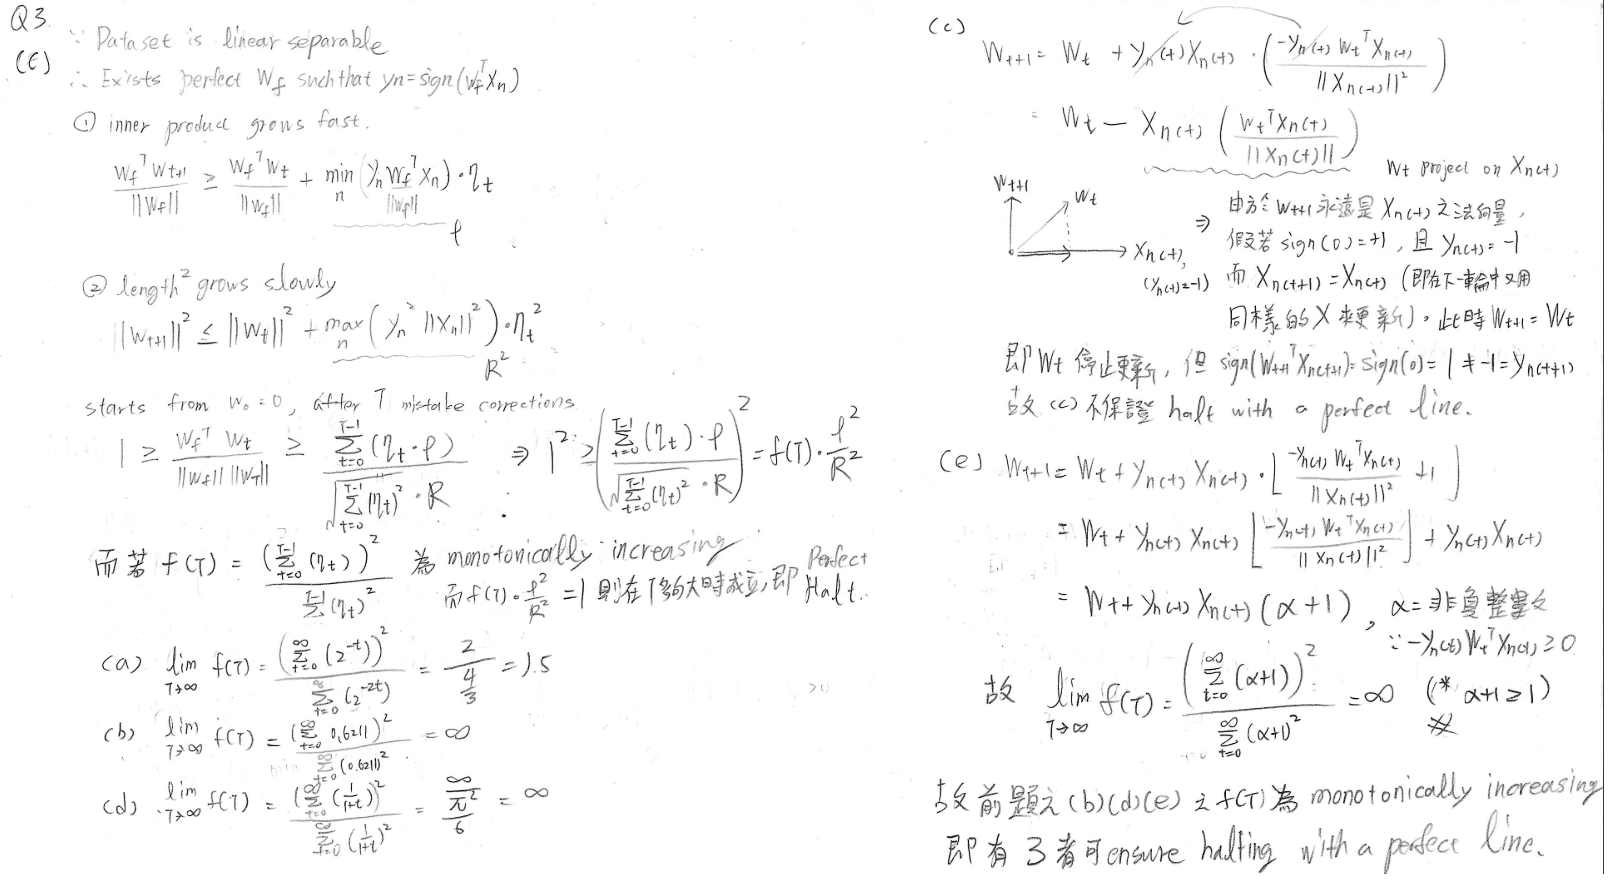 Q3.
(E)
∵ Dataset is linear separable
∴ Exists perfect W_f such that y_n = sign(w_f^T x_n)
① inner product grows fast.
w_f^T w_{t+1} / ||w_f|| ≥ w_f^T w_t / ||w_f|| + min_n (y_n w_f^T x_n / ||w_f||) · η_t
ρ
② length² grows slowly
||w_{t+1}||² ≤ ||w_t||² + max_n (y_n² ||x_n||²) · η_t²
R²
starts from w_0 = 0, after T mistake corrections
1 ≥ w_f^T w_t / ||w_f|| ||w_T|| ≥ Σ_{t=0}^{T-1} (η_t · ρ) / √(Σ_{t=0}^{T-1} (η_t)²) · R ⇒ 1² ≥ (Σ_{t=0}^{T-1} (η_t) · ρ / √(Σ_{t=0}^{T-1} (η_t)²) · R)² = f(T) · ρ²/R²
而若 f(T) = (Σ_{t=0}^{T-1} (η_t))² / Σ_{t=0}^{T-1} (η_t)² 為 monotonically increasing
而 f(T) · ρ²/R² = 1 則在 T 夠大時成立, 即 Perfect Halt.
(a) lim_{T→∞} f(T) = (Σ_{t=0}^{∞} (2^{-t}))² / Σ_{t=0}^{∞} (2^{-2t}) = 2 / (4/3) = 1.5
(b) lim_{T→∞} f(T) = (Σ_{t=0}^{∞} 0.6211)² / Σ_{t=0}^{∞} (0.6211)² = ∞
(d) lim_{T→∞} f(T) = (Σ_{t=0}^{∞} (1/(1+t)))² / Σ_{t=0}^{∞} (1/(1+t))² = ∞ / (π²/6) = ∞
(c)
W_{t+1} = W_t + y_{n(t)} X_{n(t)} · (-y_{n(t)} W_t^T X_{n(t)} / ||X_{n(t)}||²)
= W_t − X_{n(t)} (W_t^T X_{n(t)} / ||X_{n(t)}||)
W_t project on X_{n(t)}
W_{t+1}
W_t
X_{n(t)},
(y_{n(t)} = -1)
⇒ 由於 W_{t+1} 永遠是 X_{n(t)} 之法向量,
假若 sign(0) = +1, 且 y_{n(t)} = -1
而 X_{n(t+1)} = X_{n(t)} (即在下一輪中又用
同樣的 X 來更新)。此時 W_{t+1} = W_t
即 W_t 停止更新, 但 sign(W_{t+1}^T X_{n(t+1)}) = sign(0) = 1 ≠ -1 = y_{n(t+1)}
故 (c) 不保證 halt with a perfect line.
(e) W_{t+1} = W_t + y_{n(t)} X_{n(t)} · ⌊-y_{n(t)} W_t^T X_{n(t)} / ||X_{n(t)}||² + 1⌋
= W_t + y_{n(t)} X_{n(t)} ⌊-y_{n(t)} W_t^T X_{n(t)} / ||X_{n(t)}||²⌋ + y_{n(t)} X_{n(t)}
= W_t + y_{n(t)} X_{n(t)} (α+1), α = 非負整數
∵ -y_{n(t)} W_t^T X_{n(t)} ≥ 0
故 lim_{T→∞} f(T) = (Σ_{t=0}^{∞} (α+1))² / Σ_{t=0}^{∞} (α+1)² = ∞ (* α+1 ≥ 1)
※
故前題之 (b)(d)(e) 之 f(T) 為 monotonically increasing
即有 3 者可 ensure halting with a perfect line.